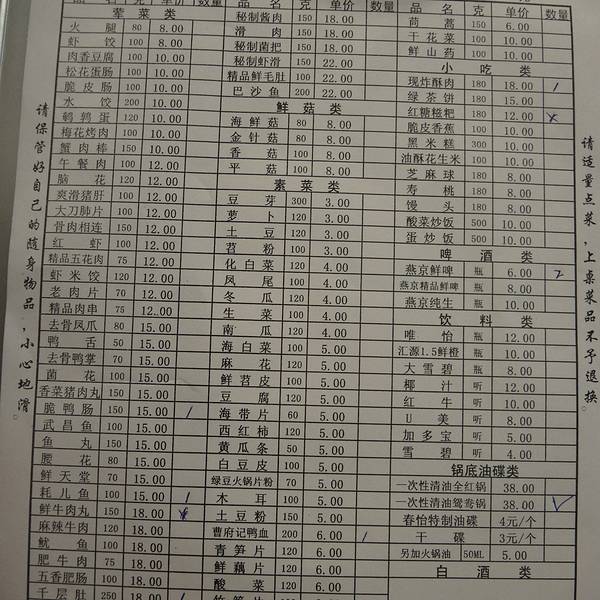 品 名 克 单价 数量
荤 菜 类
火 腿 80 8.00
虾 饺 100 8.00
肉香豆腐 100 10.00
松花蛋肠 100 10.00
脆皮肠 100 10.00
水 饺 200 10.00
鹌鹑蛋 120 10.00
梅花烤肉 100 10.00
蟹肉棒 150 10.00
午餐肉 100 12.00
脑 花 120 12.00
爽滑猪肝 100 12.00
大刀肺片 100 12.00
骨肉相连 150 12.00
红 虾 100 12.00
精品五花肉 75 12.00
虾米饺 120 12.00
老肉片 70 12.00
精品肉串 75 12.00
去骨凤爪 80 15.00
鸭 舌 50 15.00
去骨鸭掌 70 15.00
菌 花 100 15.00
香菜猪肉丸 150 15.00
脆鸭肠 150 15.00
武昌鱼 100 15.00
鱼 丸 150 15.00
腰 花 80 15.00
鲜天堂 70 15.00
耗儿鱼 100 15.00
鲜牛肉丸 150 18.00
麻辣牛肉 120 18.00
鱿 鱼 100 18.00
肥牛肉 75 18.00
五香肥肠 100 18.00
千层肚 250 18.00
秘制酱肉 150 18.00
滑 肉 150 18.00
秘制菌把 150 18.00
秘制虾滑 150 22.00
精品鲜毛肚 100 22.00
巴沙鱼 200 22.00
鲜 菇 类
海鲜菇 80 8.00
金针菇 80 8.00
香 菇 100 8.00
平 菇 100 8.00
素 菜 类
豆 芽 300 3.00
萝 卜 120 3.00
土 豆 120 3.00
苕 粉 100 3.00
化白菜 120 4.00
凤 尾 100 4.00
冬 瓜 120 4.00
生 菜 100 4.00
南 瓜 120 4.00
海白菜 100 5.00
麻 花 120 5.00
鲜苕皮 100 5.00
豆 腐 120 5.00
海带片 60 5.00
西红柿 120 5.00
黄瓜条 50 5.00
白豆皮 100 5.00
绿豆火锅片粉 50 5.00
木 耳 100 5.00
土豆粉 150 5.00
曹府记鸭血 200 6.00
青笋片 120 6.00
鲜藕片 120 6.00
酸 菜 120 6.00
品 名 克 单价 数量
茼 蒿 150 6.00
干花菜 100 10.00
鲜山药 100 10.00
小 吃 类
现炸酥肉 180 18.00
绿茶饼 180 15.00
红糖糍粑 180 12.00
脆皮香蕉 100 10.00
黑米糕 300 10.00
油酥花生米 100 10.00
芝麻球 180 8.00
寿 桃 180 8.00
馒 头 180 8.00
酸菜炒饭 500 10.00
蛋炒饭 500 10.00
啤 酒 类
燕京鲜啤 瓶 6.00
燕京精品鲜啤 瓶 8.00
燕京纯生 瓶 10.00
饮 料 类
唯 怡 瓶 12.00
汇源1.5鲜橙 瓶 10.00
大雪碧 瓶 8.00
椰 汁 听 12.00
红 牛 听 10.00
U 美 听 8.00
加多宝 听 5.00
雪 碧 听 4.00
锅底油碟类
一次性清油全红锅 38.00
一次性清油鸳鸯锅 38.00
春怡特制油碟 4元/个
干 碟 3元/个
另加火锅油 50ML 5.00
白 酒 类
请保管好自己的随身物品,小心地滑。
请适量点菜,上桌菜品不予退换。